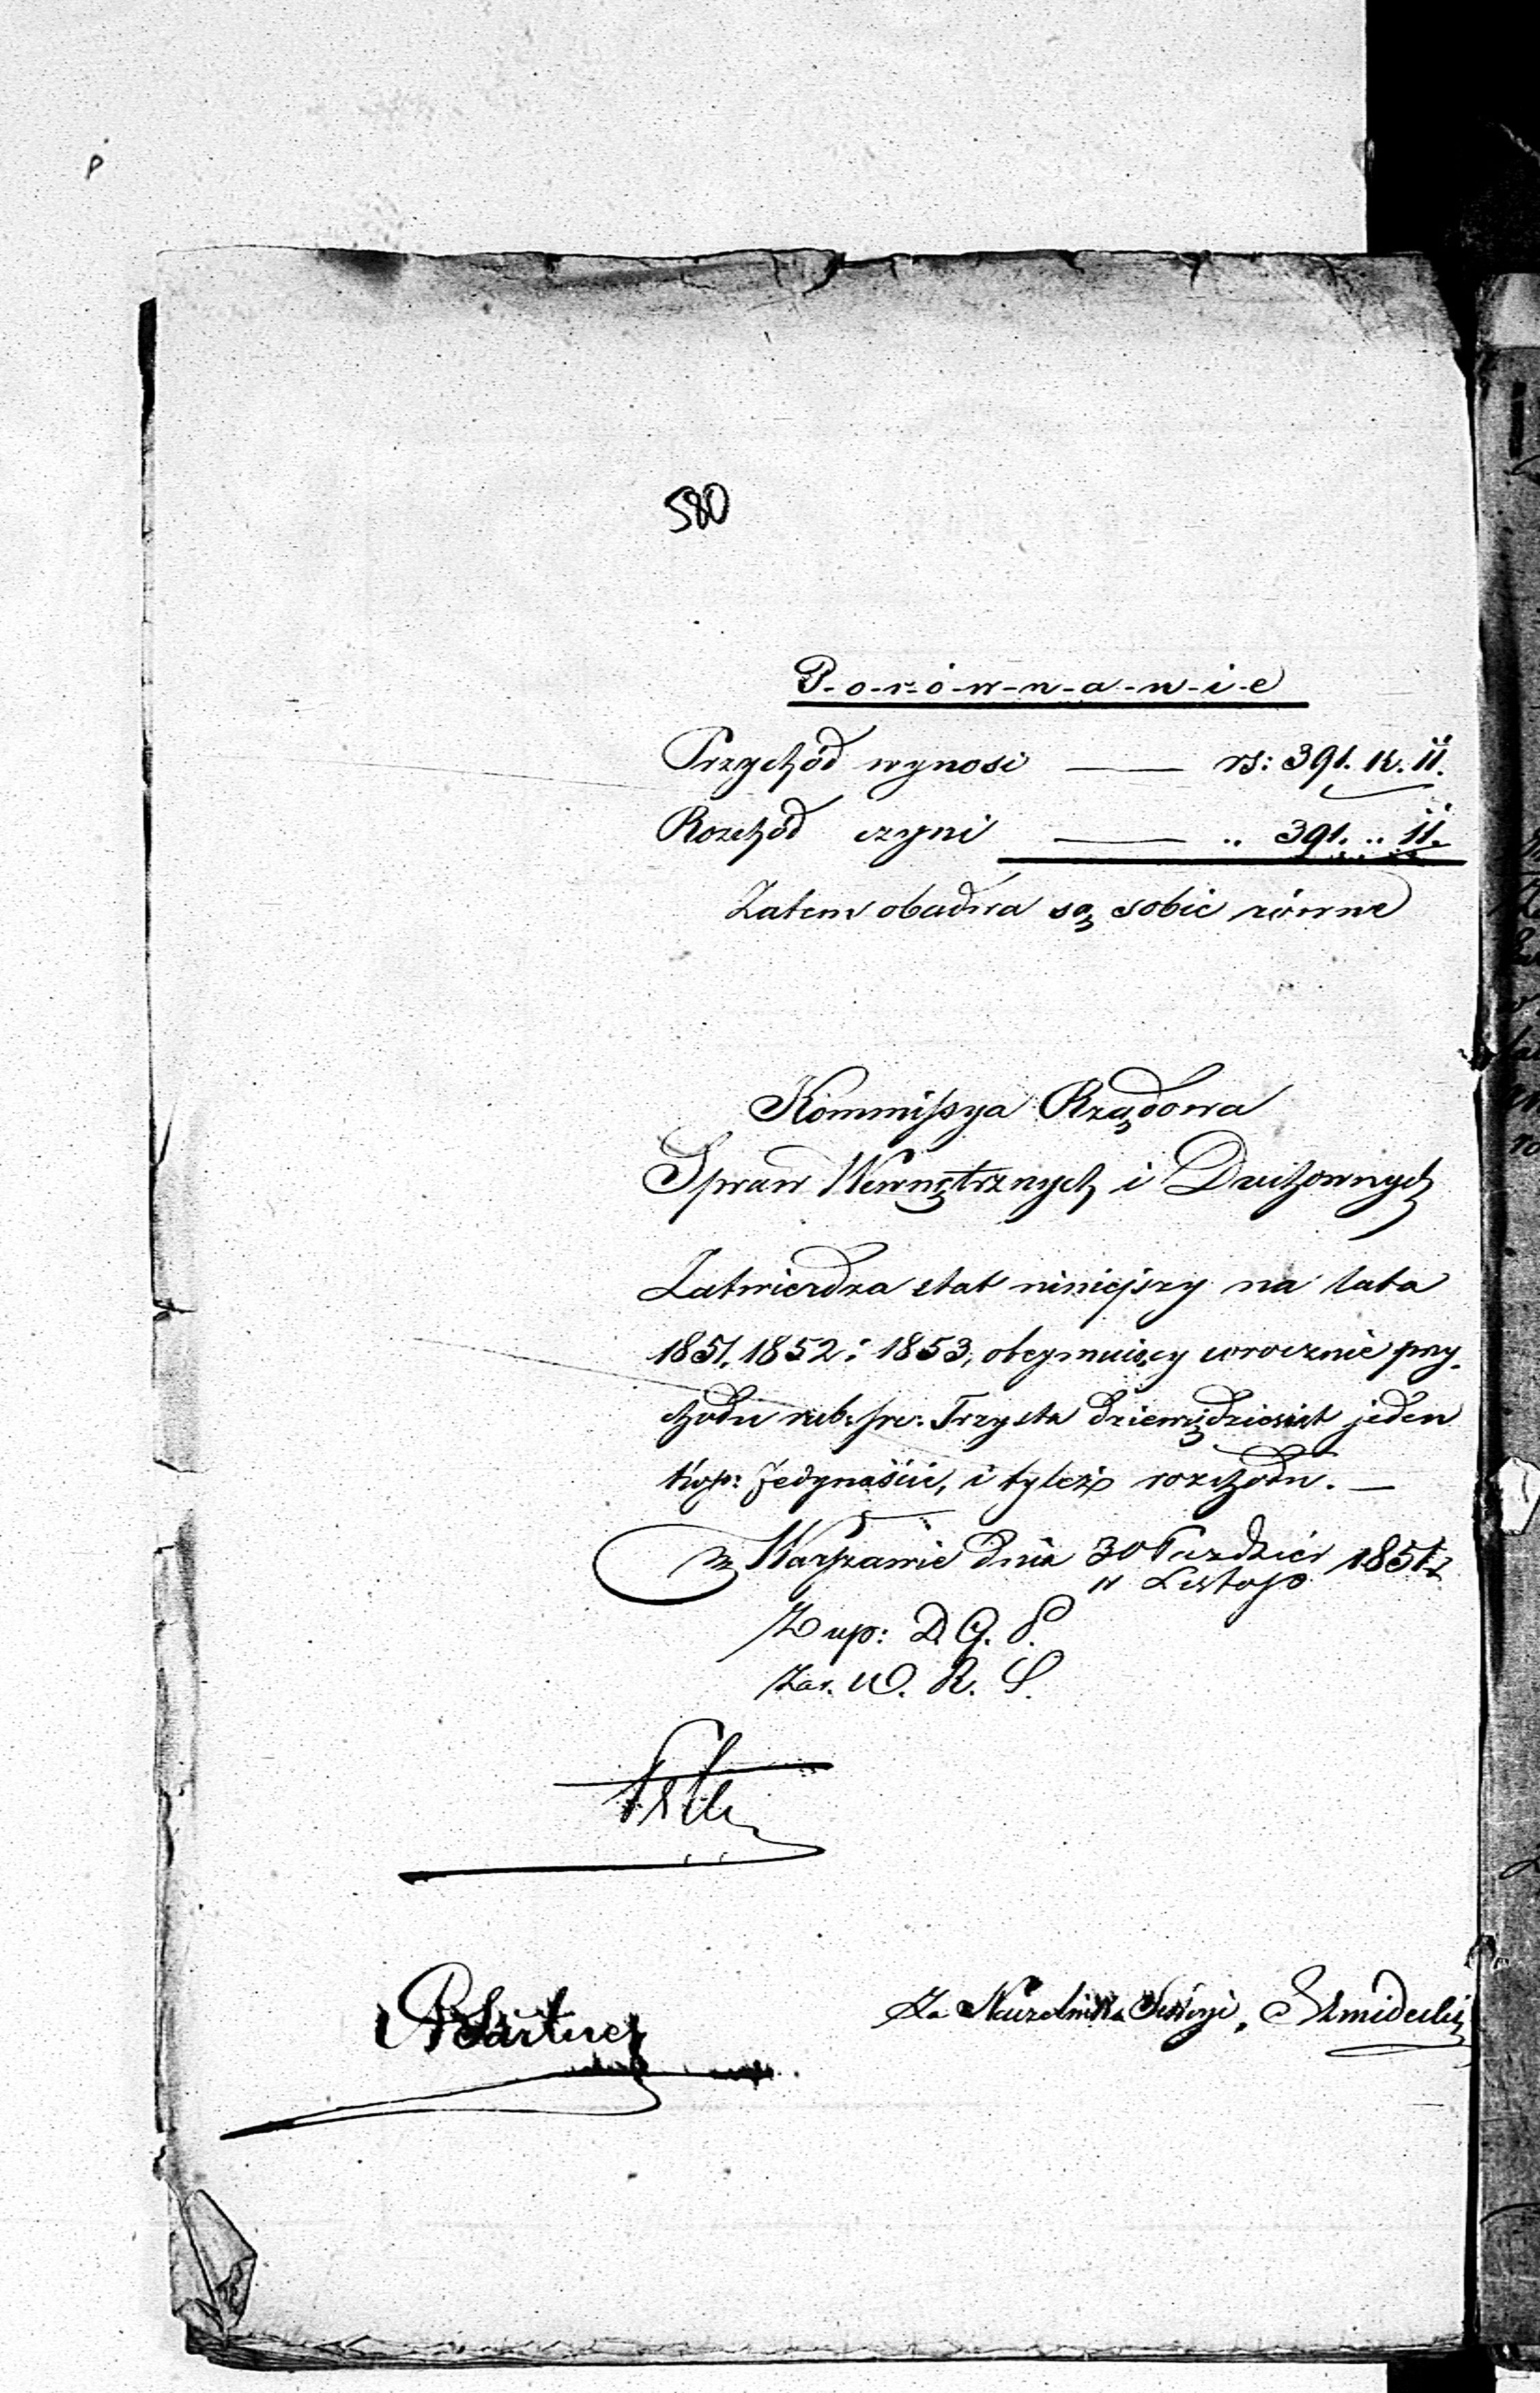 580
P-o-r-ó-w-n-a-n-i-e
Przychód wynosi — rs: 391. k. 11.
Rozchód czyni — „ 391. „ 11.
Zatem obadwa są sobie równe
Kommissya Rządowa
Spraw Wewnętrznych i Duchownych
Zatwierdza etat niniejszy na lata
1851, 1852 i 1853, obejmuiący corocznie przy-
chodu rub: sre: Trzysta dziewięćdziesiąt jeden
kop: Jedynaście, i tyleż rozchodu. —
w Warszawie dnia 30 Paździer 1851 r
11 Listop
Z up: D. G. P.
Zar. W. R. S.
Za Naczelnika Sekcyi,